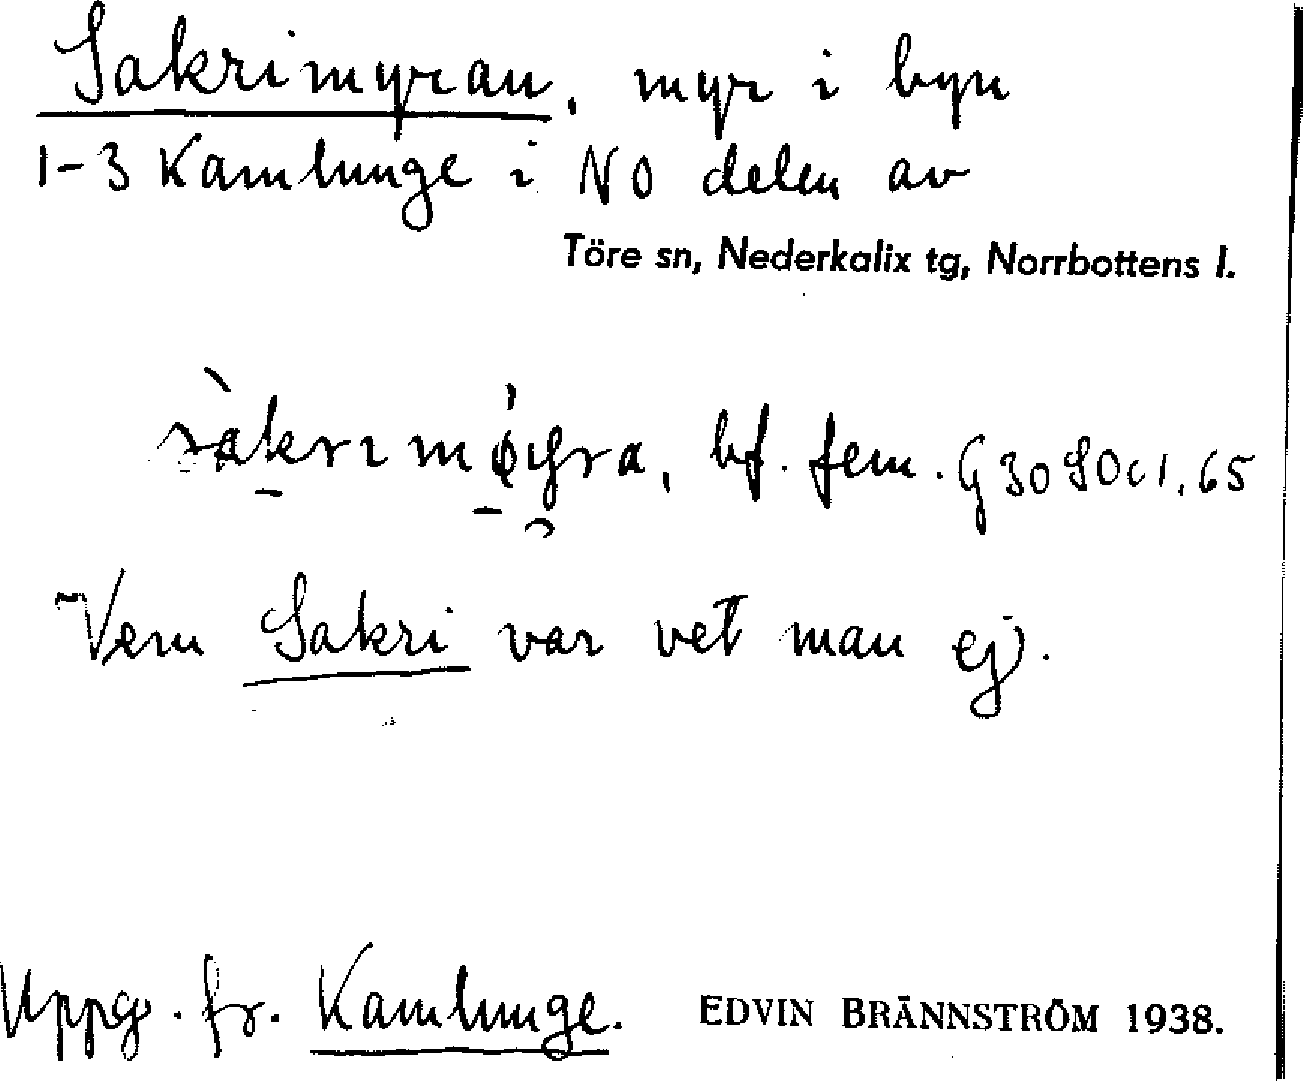 Sakrimyran, myr i byn
1-3 Kamlunge i NO delen av
Töre sn, Nederkalix tg, Norrbottens l.
bf. fem. G 30 S O c 1, 65
Vem Sakri var vet man ej.
Uppg. fr. Kamlunge. EDVIN BRÄNNSTRÖM 1938.